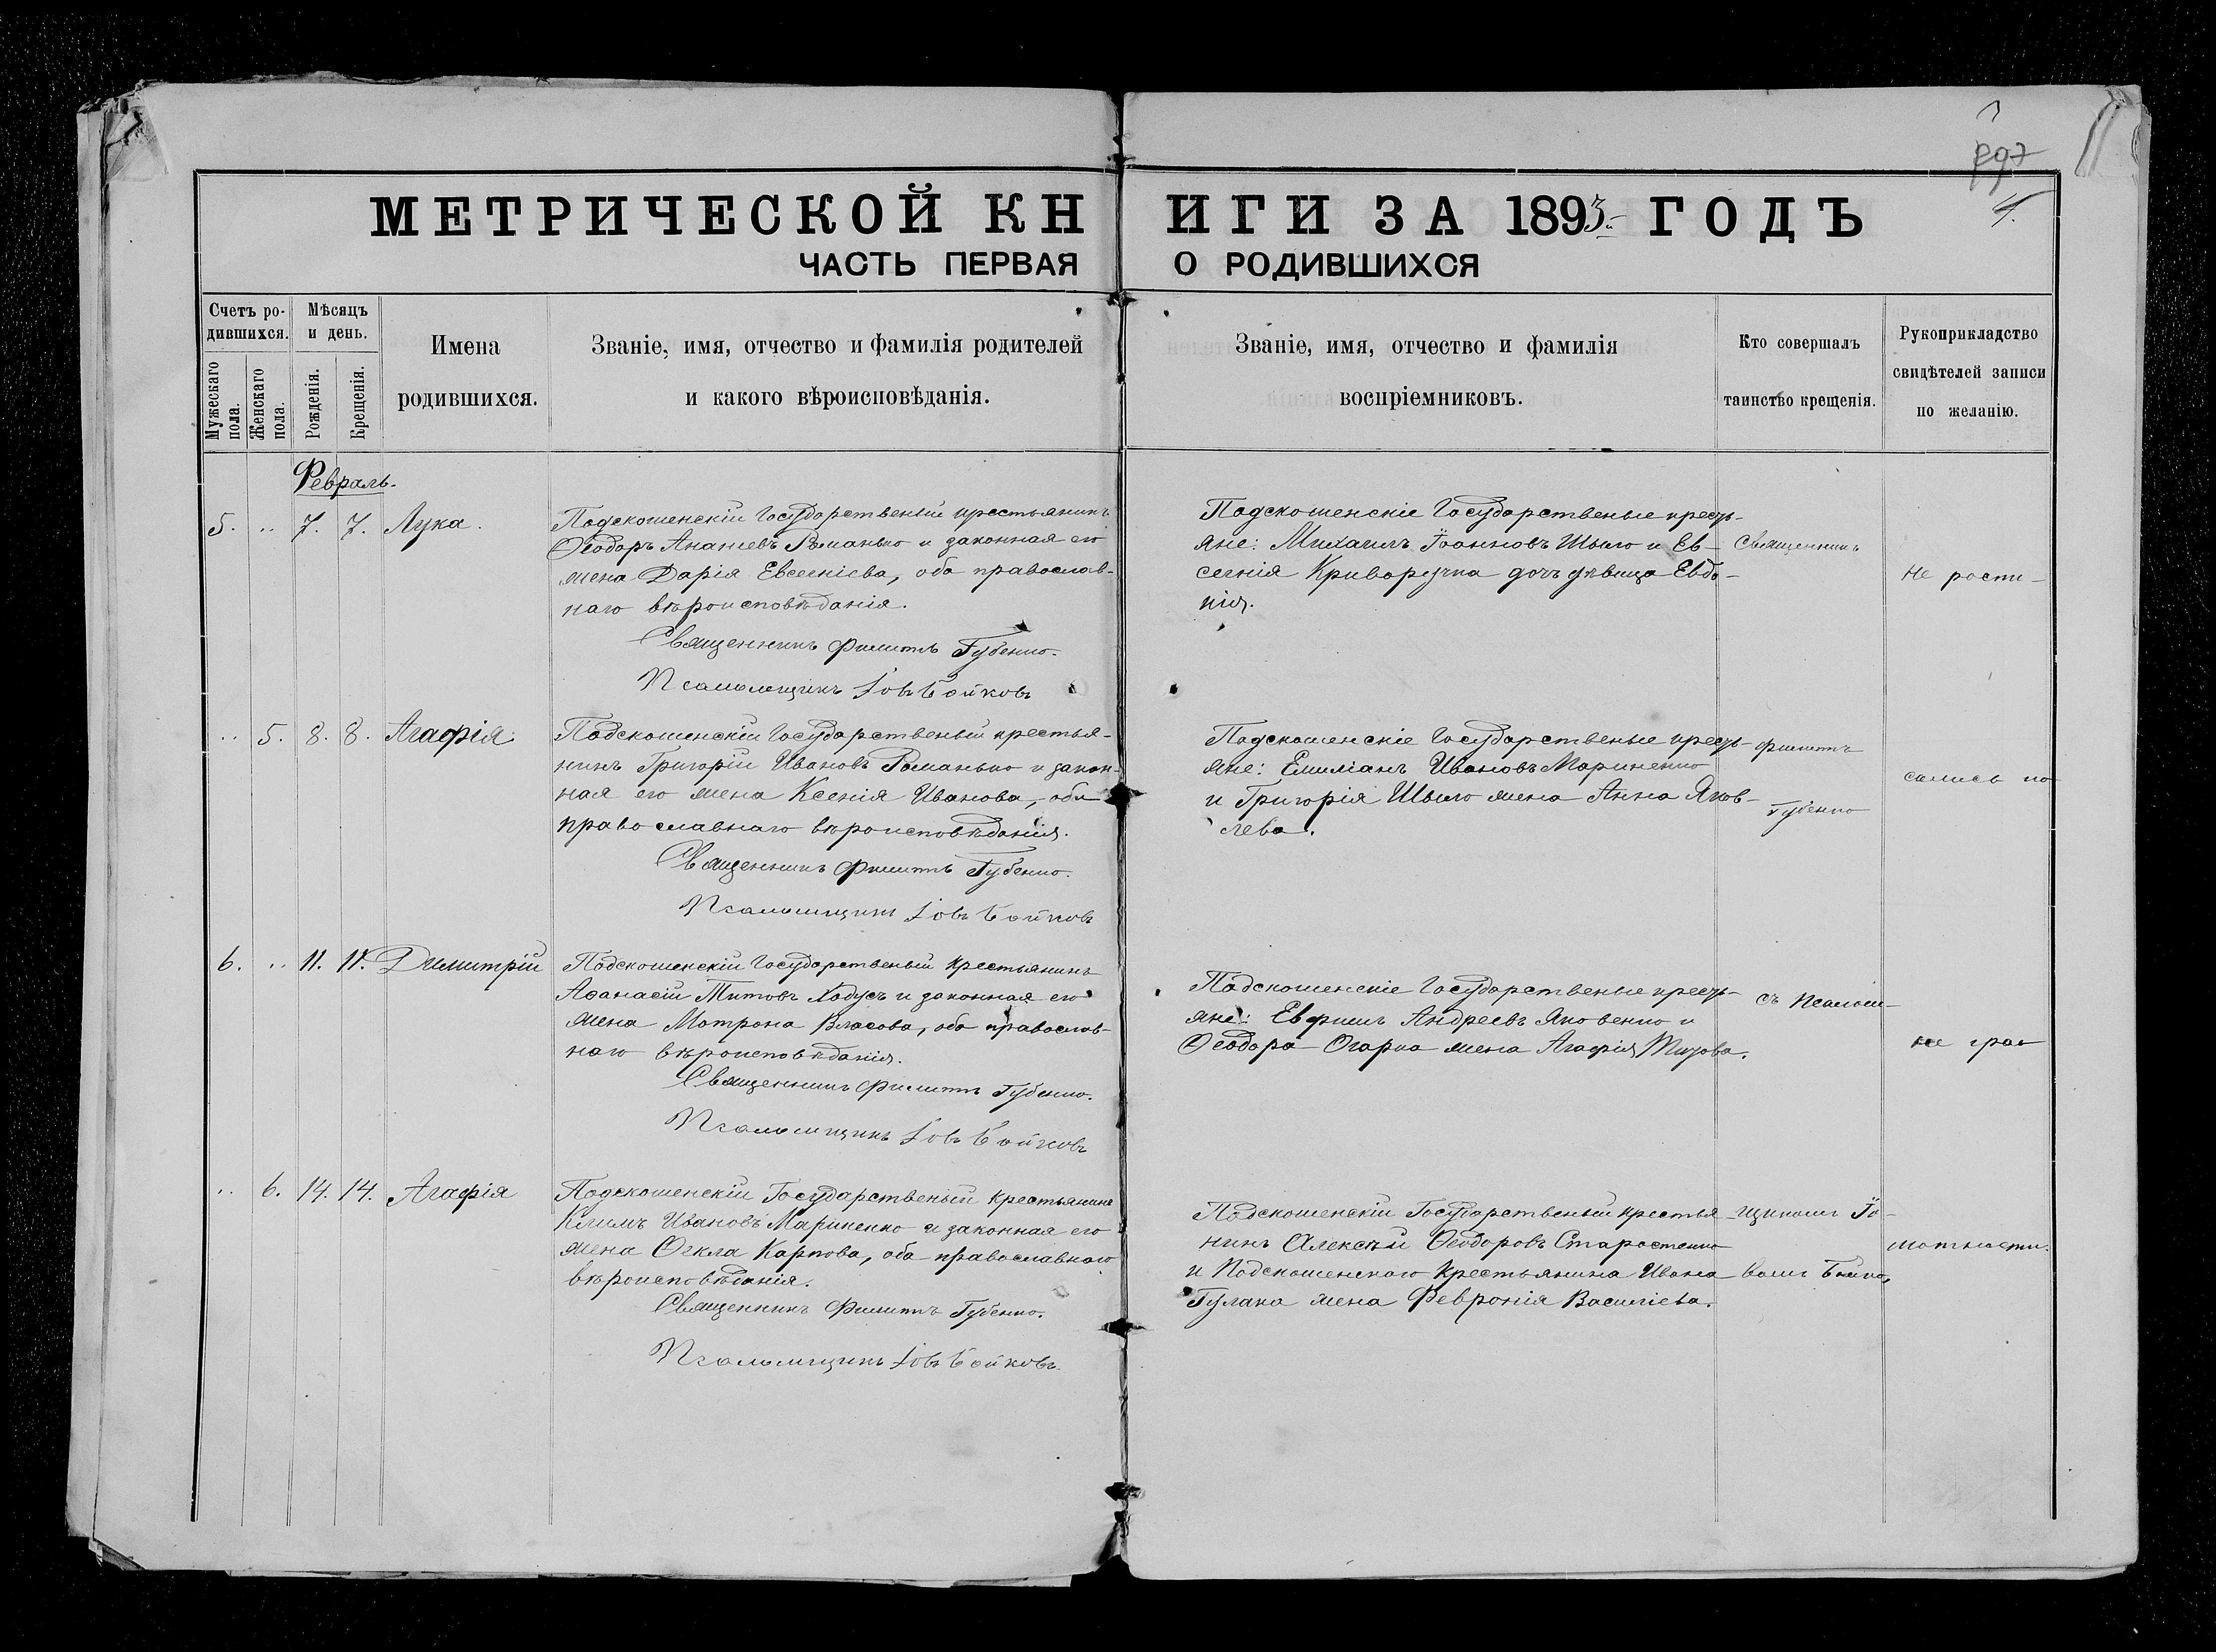 МЕТРИЧЕСКОЙ КНИГИ ЗА 1893 ГОДЪ
ЧАСТЬ ПЕРВАЯ О РОДИВШИХСЯ
Счетъ ро-
дившихся.
Мужескаго
пола.
Женскаго
пола.
Мѣсяцъ
и день.
Рожденія.
Крещенія.
Имена
родившихся.
Званіе, имя, отчество и фамилія родителей
и какого вѣроисповѣданія.
Званіе, имя, отчество и фамилія
воспріемниковъ.
Кто совершалъ
таинство крещенія.
Рукоприкладство
свидѣтелей записи
по желанію.
Февраль.
5. .. 7. 7. Лука.
Подскошенскій Государственый крестьянинъ
Ѳеодоръ Ананіевъ Романько и законная его
жена Дарія Евсегніева, оба православ-
наго вѣроисповѣданія.
Священникъ Филиппъ Губенко.
Псаломщикъ Іовъ Бойковъ
Подскошенскіе Государственые кресть-
яне: Михаилъ Іоанновъ Шыло и Ев-
сегнія Криворучка дочь дѣвица Евдо-
кія.
.. 5. 8. 8. Агафія
Подскошенскій Государственый крестья-
нинъ Григорій Ивановъ Романько и закон-
ная его жена Ксенія Иванова, оба
православнаго вѣроисповѣданія.
Священникъ Филиппъ Губенко.
Псаломщикъ Іовъ Бойковъ
Подскошенскіе Государственые кресть-
яне: Емиліанъ Ивановъ Мариненко
и Григорія Шыло жена Анна Яков-
лева.
6. .. 11. 11. Димитрій
Подскошенскій Государственый крестьянинъ
Аѳанасій Титовъ Ходусъ и законная его
жена Матрона Власова, оба православ-
наго вѣроисповѣданія.
Священникъ Филиппъ Губенко.
Псаломщикъ Іовъ Бойковъ
Подскошенскіе Государственые кресть-
яне: Евфимъ Андреевъ Яковенко и
Ѳеодора Огарка жена Агафія Титова.
.. 6. 14. 14. Агафія
Подскошенскій Государственый крестьянинъ
Климъ Ивановъ Мариненко и законная его
жена Ѳекла Карпова, оба православнаго
вѣроисповѣданія.
Священникъ Филиппъ Губенко.
Псаломщикъ Іовъ Бойковъ.
Подскошенскій Государственый крестья-
нинъ Алексѣй Ѳеодоровъ Старостенко
и Подскошенскаго крестьянина Ивана
Гулака жена Февронія Василіева.
Священникъ
Филиппъ
Губенко
съ псалом-
щикомъ Іо-
вомъ
Не роспи-
сались по
не гра
мотности.